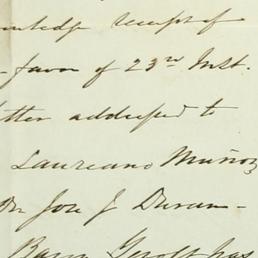 receipt of
favor of 23rd Inst.
addressed to
Laureano Muñoz
Jose J Duran -
Baron Gerolt has